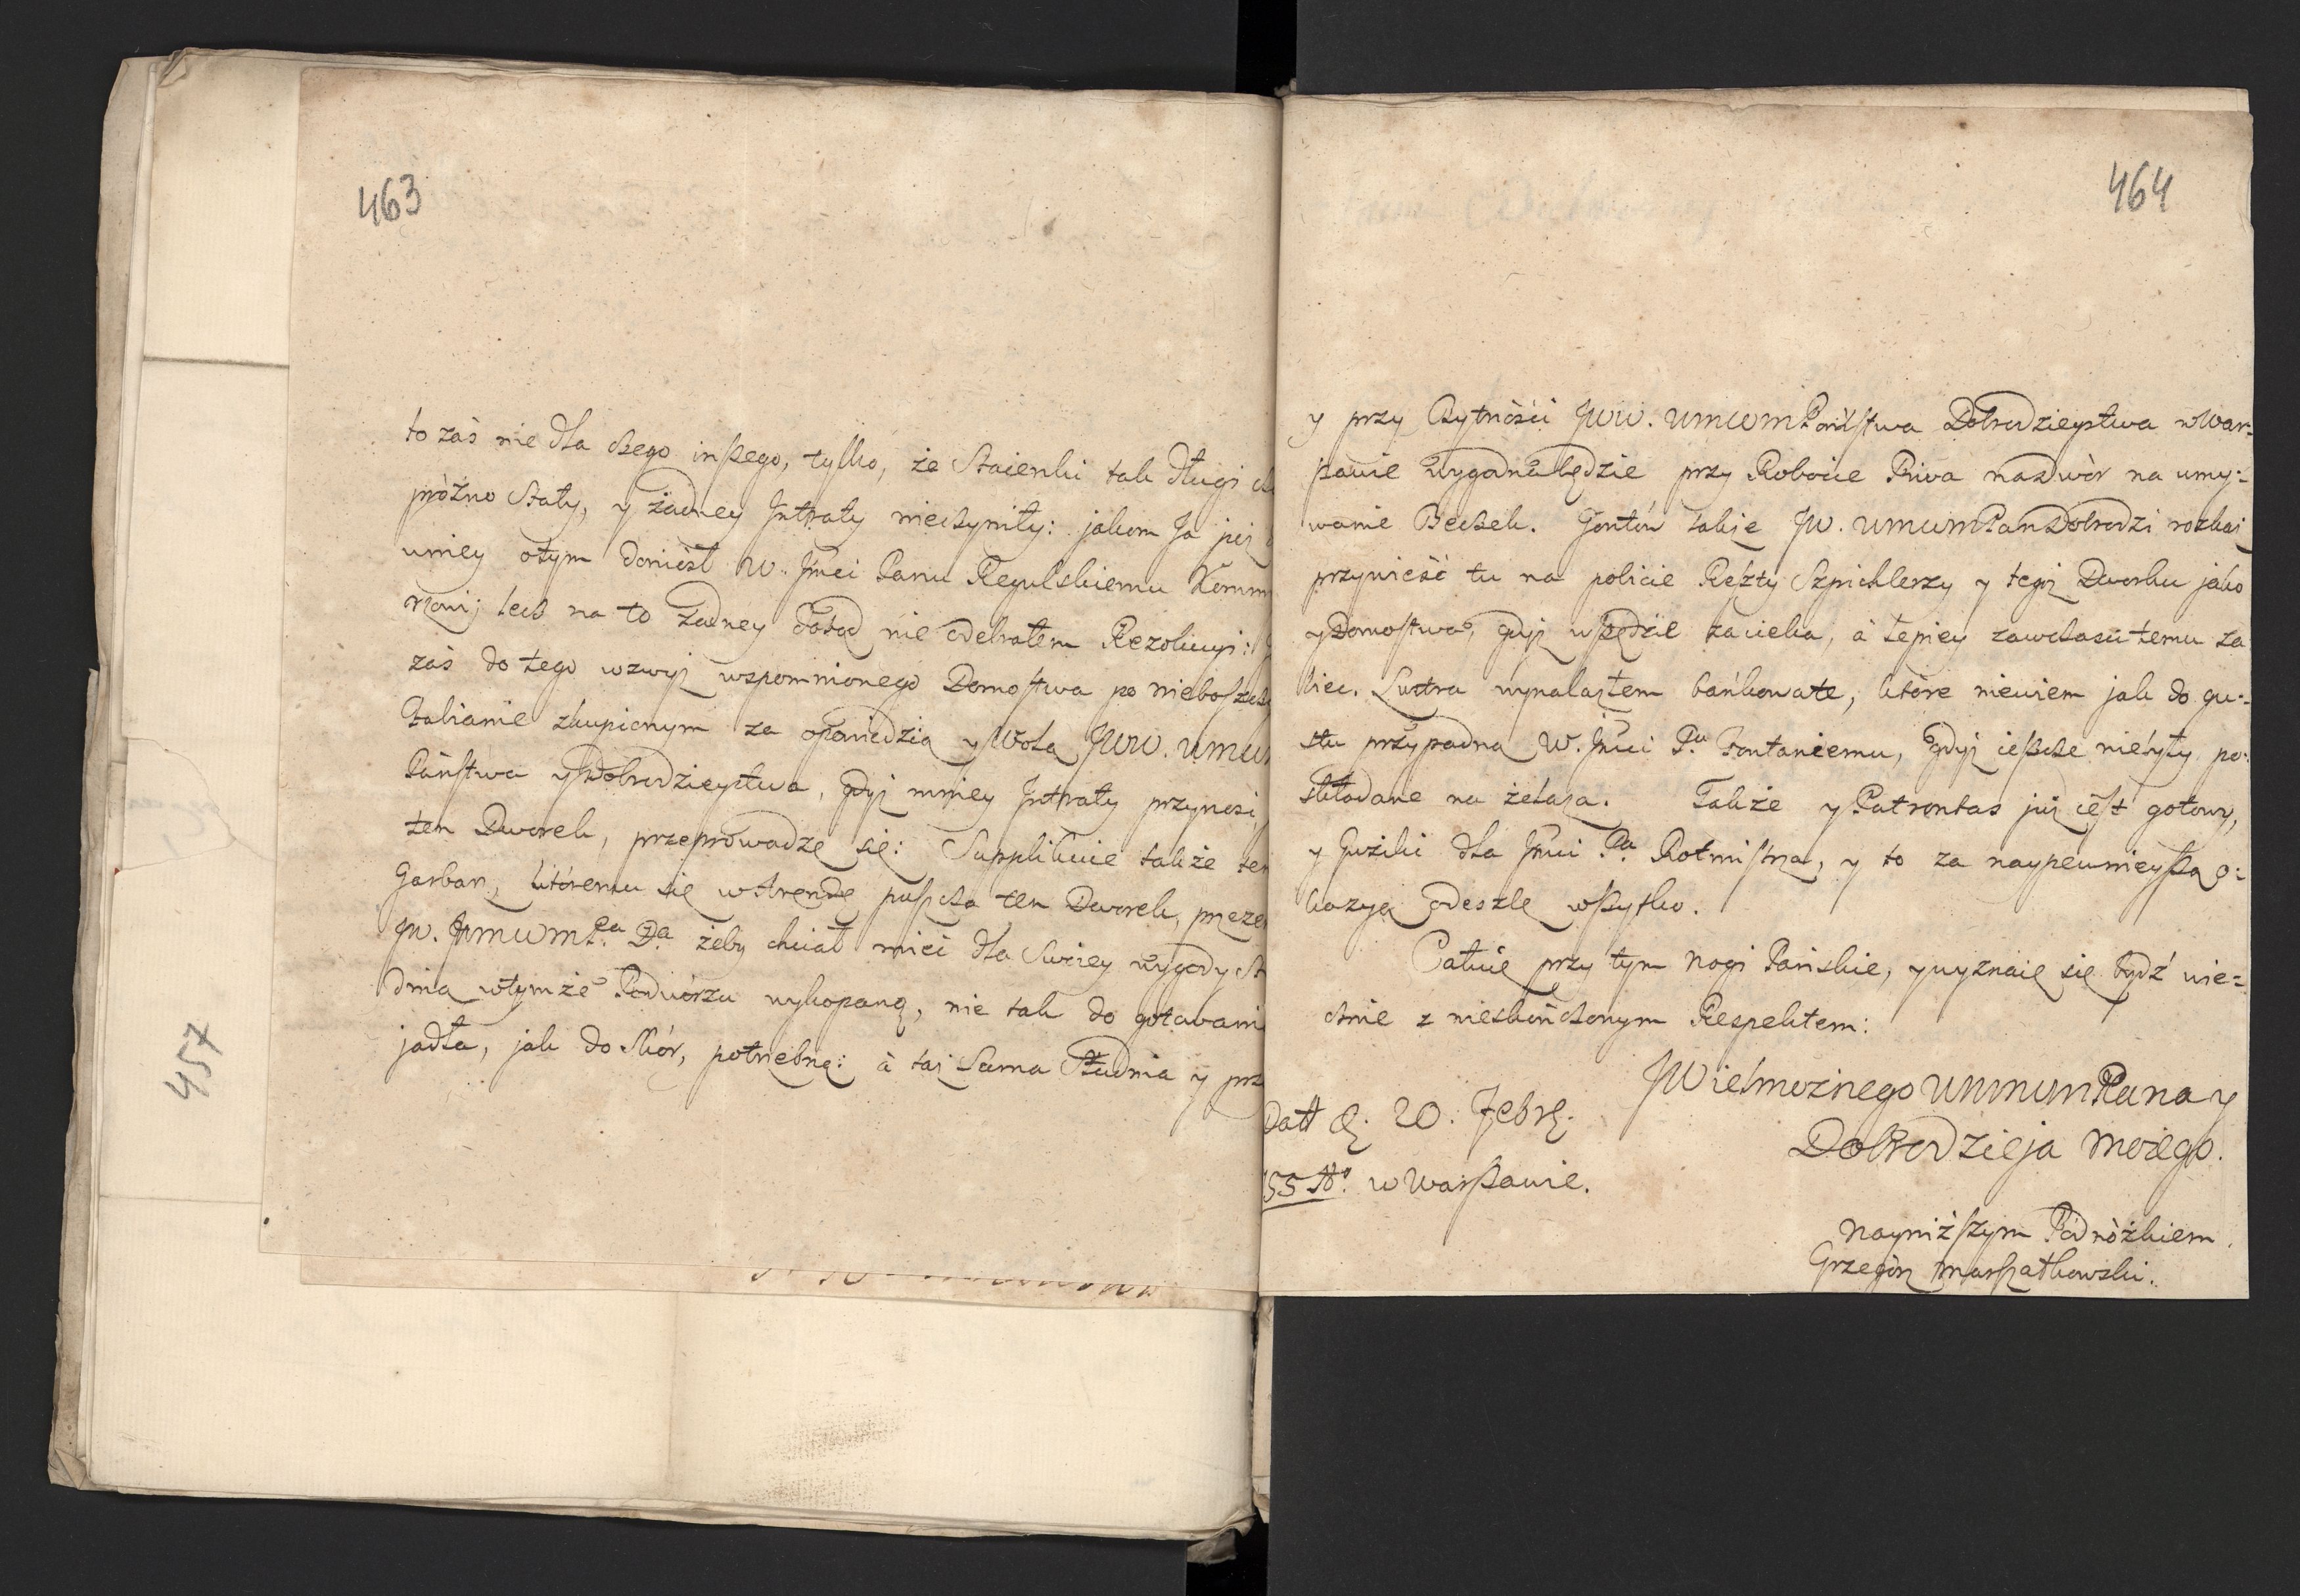 463
to zaś nie dla czego inszego, tylko, że Staienki tak długi
próżno Stały, y żadney Intraty nieczyniły: jakom Ja już
umiey otym doniósł W. Jmci Panu Regulskiemu Komm
rzowi; lecz na to żadney dotąd nie odebrałem Rezolucyi:
zaś do tego wzwyż wspomnionego Domostwa po nieboszcz
Fabianie zkupionym za opowiedzią y Wolą JWW. UMCWM
Państwa y Dobrodzieystwa, gdyż mniey Intraty przynosi,
ten Dworek, przeprowadzę się: Supplikuie także ten
Garbarz, któremu się w Arendę puszcza ten Dworek, przeze
JW. WMCWMPa. Da. żeby chciał mieć dla Swoiey wygody St
dnią wtymże Podwórzu wykopaną, nie tak do gotowani
jadła, jak do Skór, potrzebnę: à taż Sama Studnia y prz
457
464
y przy Bytności JWW. UMCWM Państwa Dobrodzieystwa w War=
szawie wygodna będzie przy Robocie Piwa na dwór na umy=
wanie Beczek. Gontów także JW. UMCWMPan Dobrodzi rozkaż
przywieść tu na policie Reszty Szpichlerzy y tegoż Dworku jako
y Domostwa, gdyż wszędzie zacieka, à lepiey zawczasu temu za
biec. Lustra wynalazłem bańkowate, które niewiem jak do gu=
stu przypadną W. Jmci Pu Fontaniemu, gdyż ieszcze niebyły po=
składane na żelaza. Także y Patrontas już iest gotowy,
y Guziki dla Jmci Pa. Rotmistrza, y to za naypewnieyszą o=
kazyą odeszlę wszytko.
Całuię przy tym Nogi Pańskie, y wyznaię się bydź wie=
cznie z nieskończonym Respektem:
JWielmożnego UMMWMPana y
Dobrodzieja Moiego.
Datt d. 20. Febr.
55 Ao. w Warszawie.
Nayniższym Podnóżkiem
Grzegórz Marszałkowski.